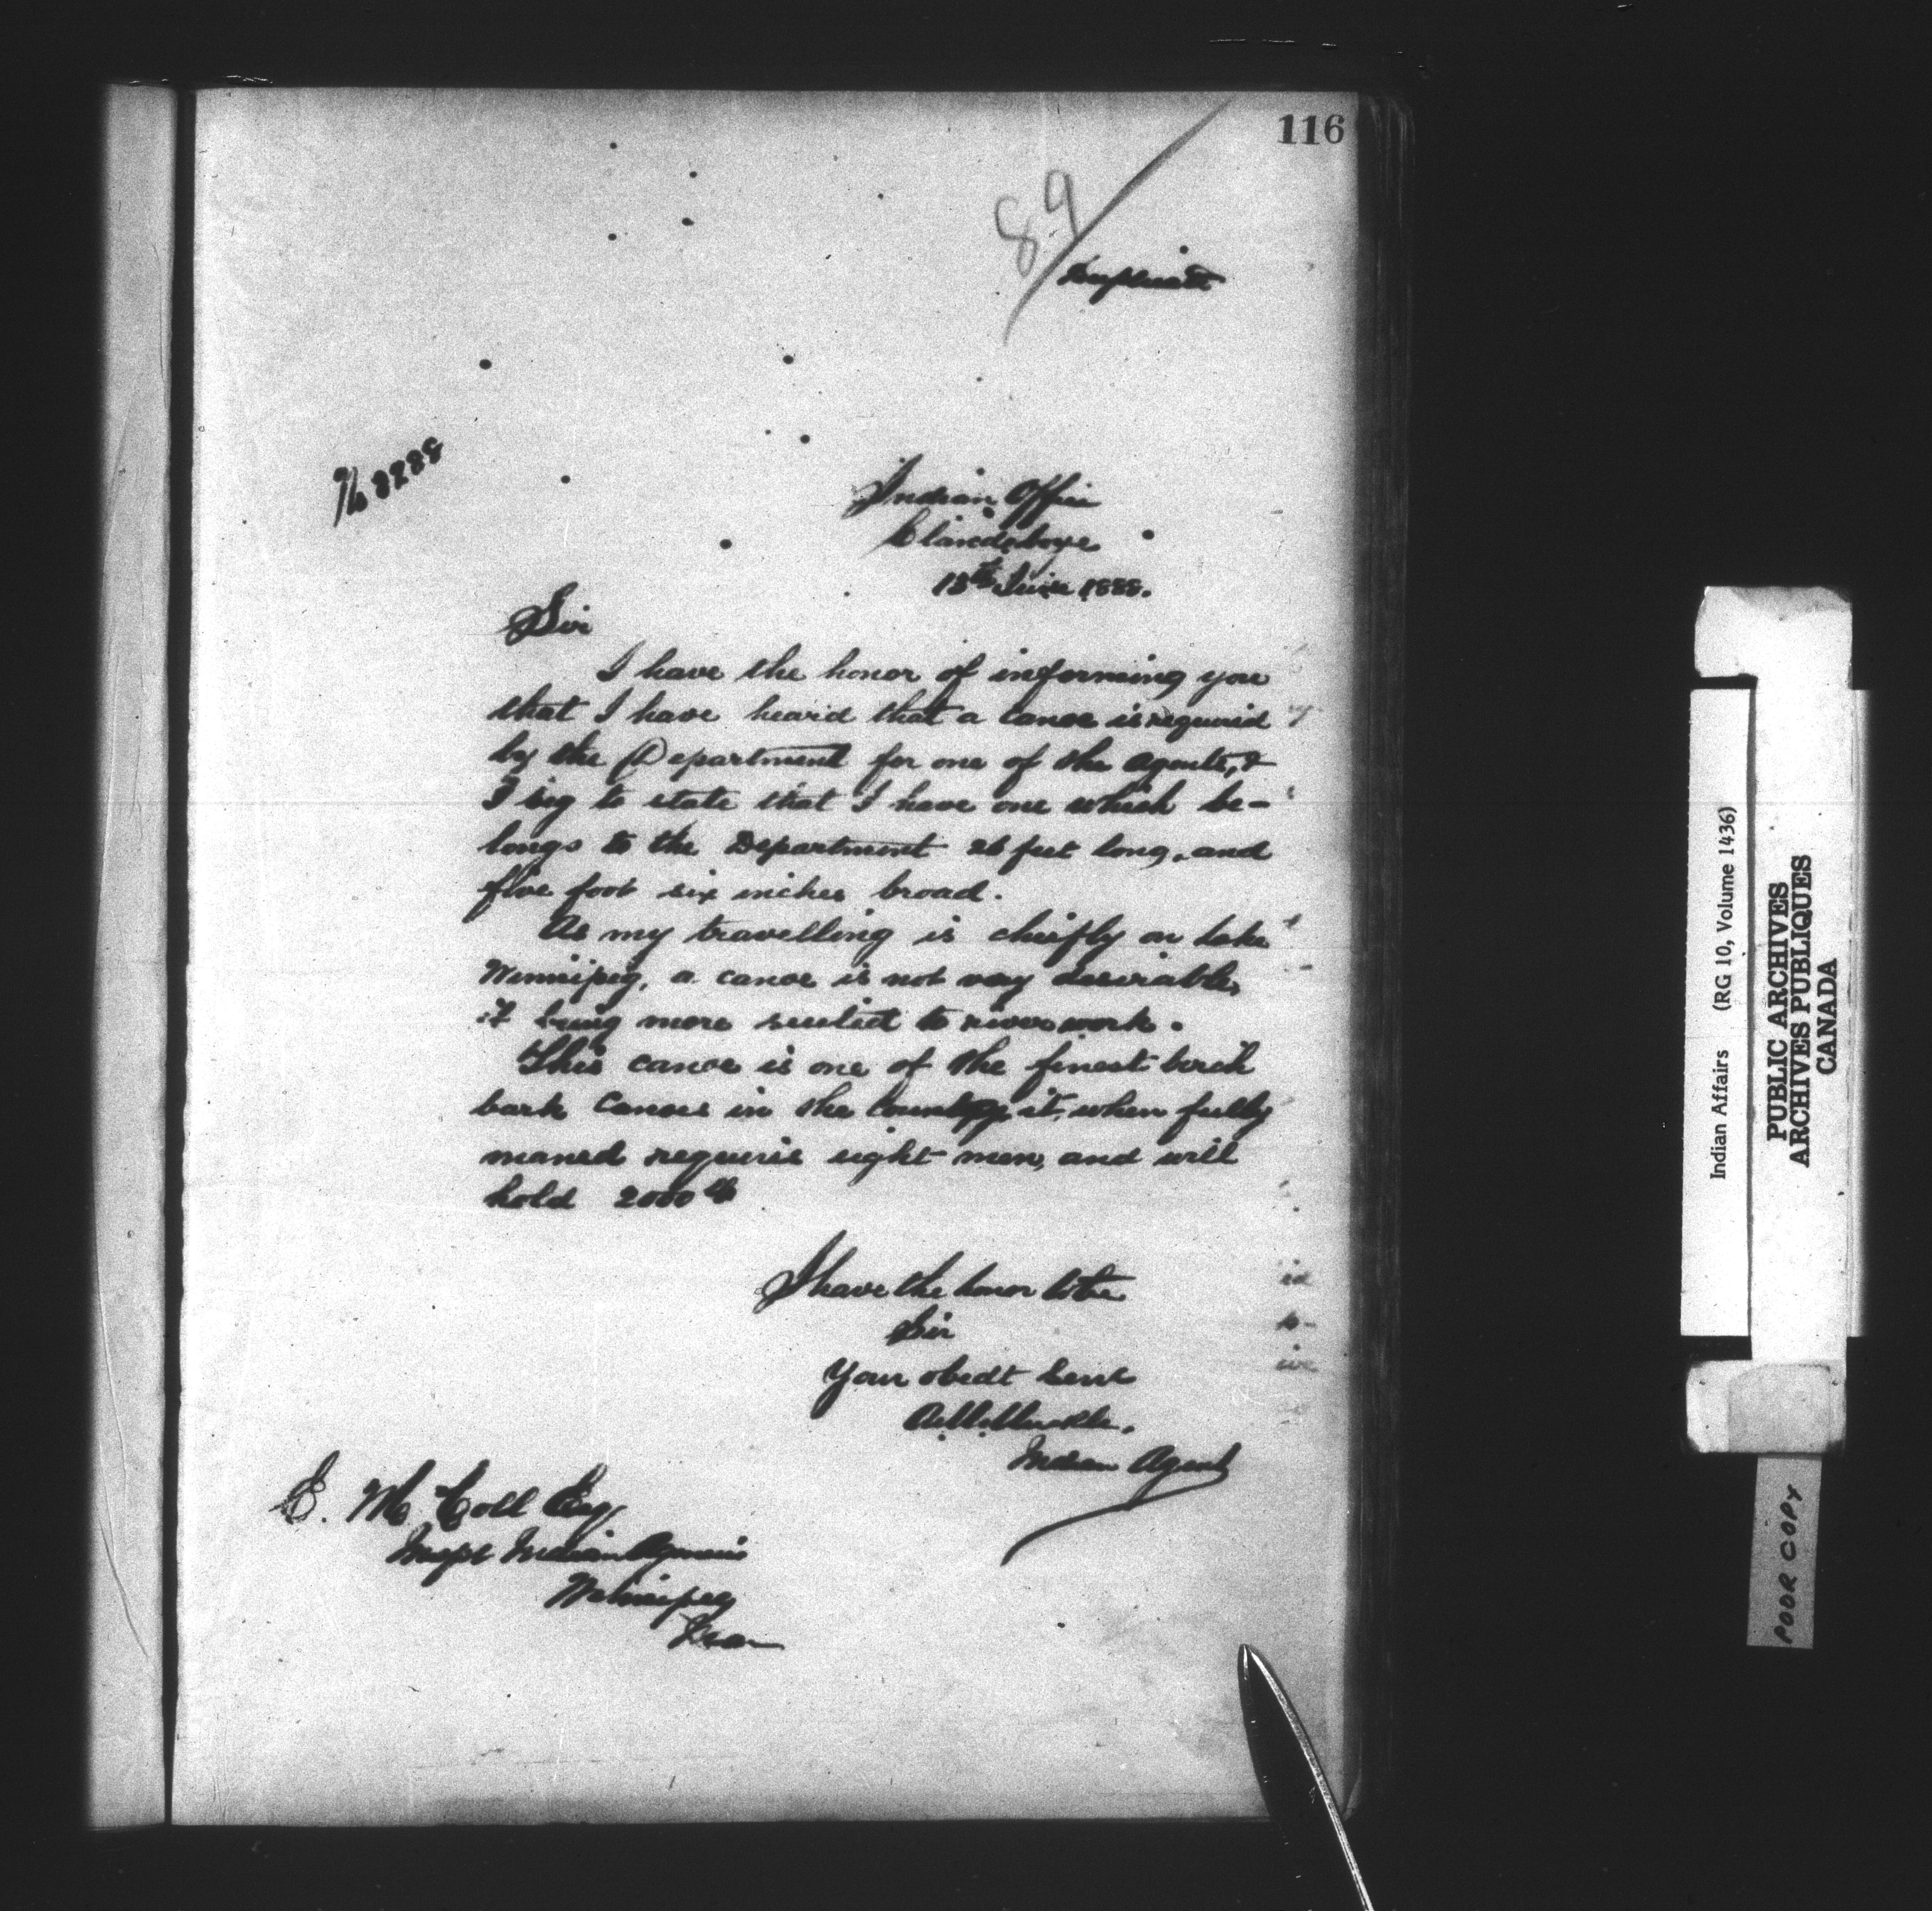 116
89
Duplicate
Indian Office
Clandeboye
13th June 1888.
Sir
I have the honor of informing you
that I have heard that a canoe is required
by the Department for one of the Agents, &
I beg to state that I have one which be-
longs to the Department 26 feet long, and
five foot six inches broad.
As my travelling is chiefly on Lake
Winnipeg, a canoe is not very desirable,
it being more suited to river work.
This canoe is one of the finest birch
bark canoes in the country it, when fully
maned requires eight men, and will
hold 2000 lb
I have the honor to be
Sir
Your obedt Servt
Indian Agent
E. McColl Esq
Inspt Indian Agencies
Winnipeg
Man
Indian Affairs (RG 10, Volume 1436)
PUBLIC ARCHIVES
ARCHIVES PUBLIQUES
CANADA
POOR COPY